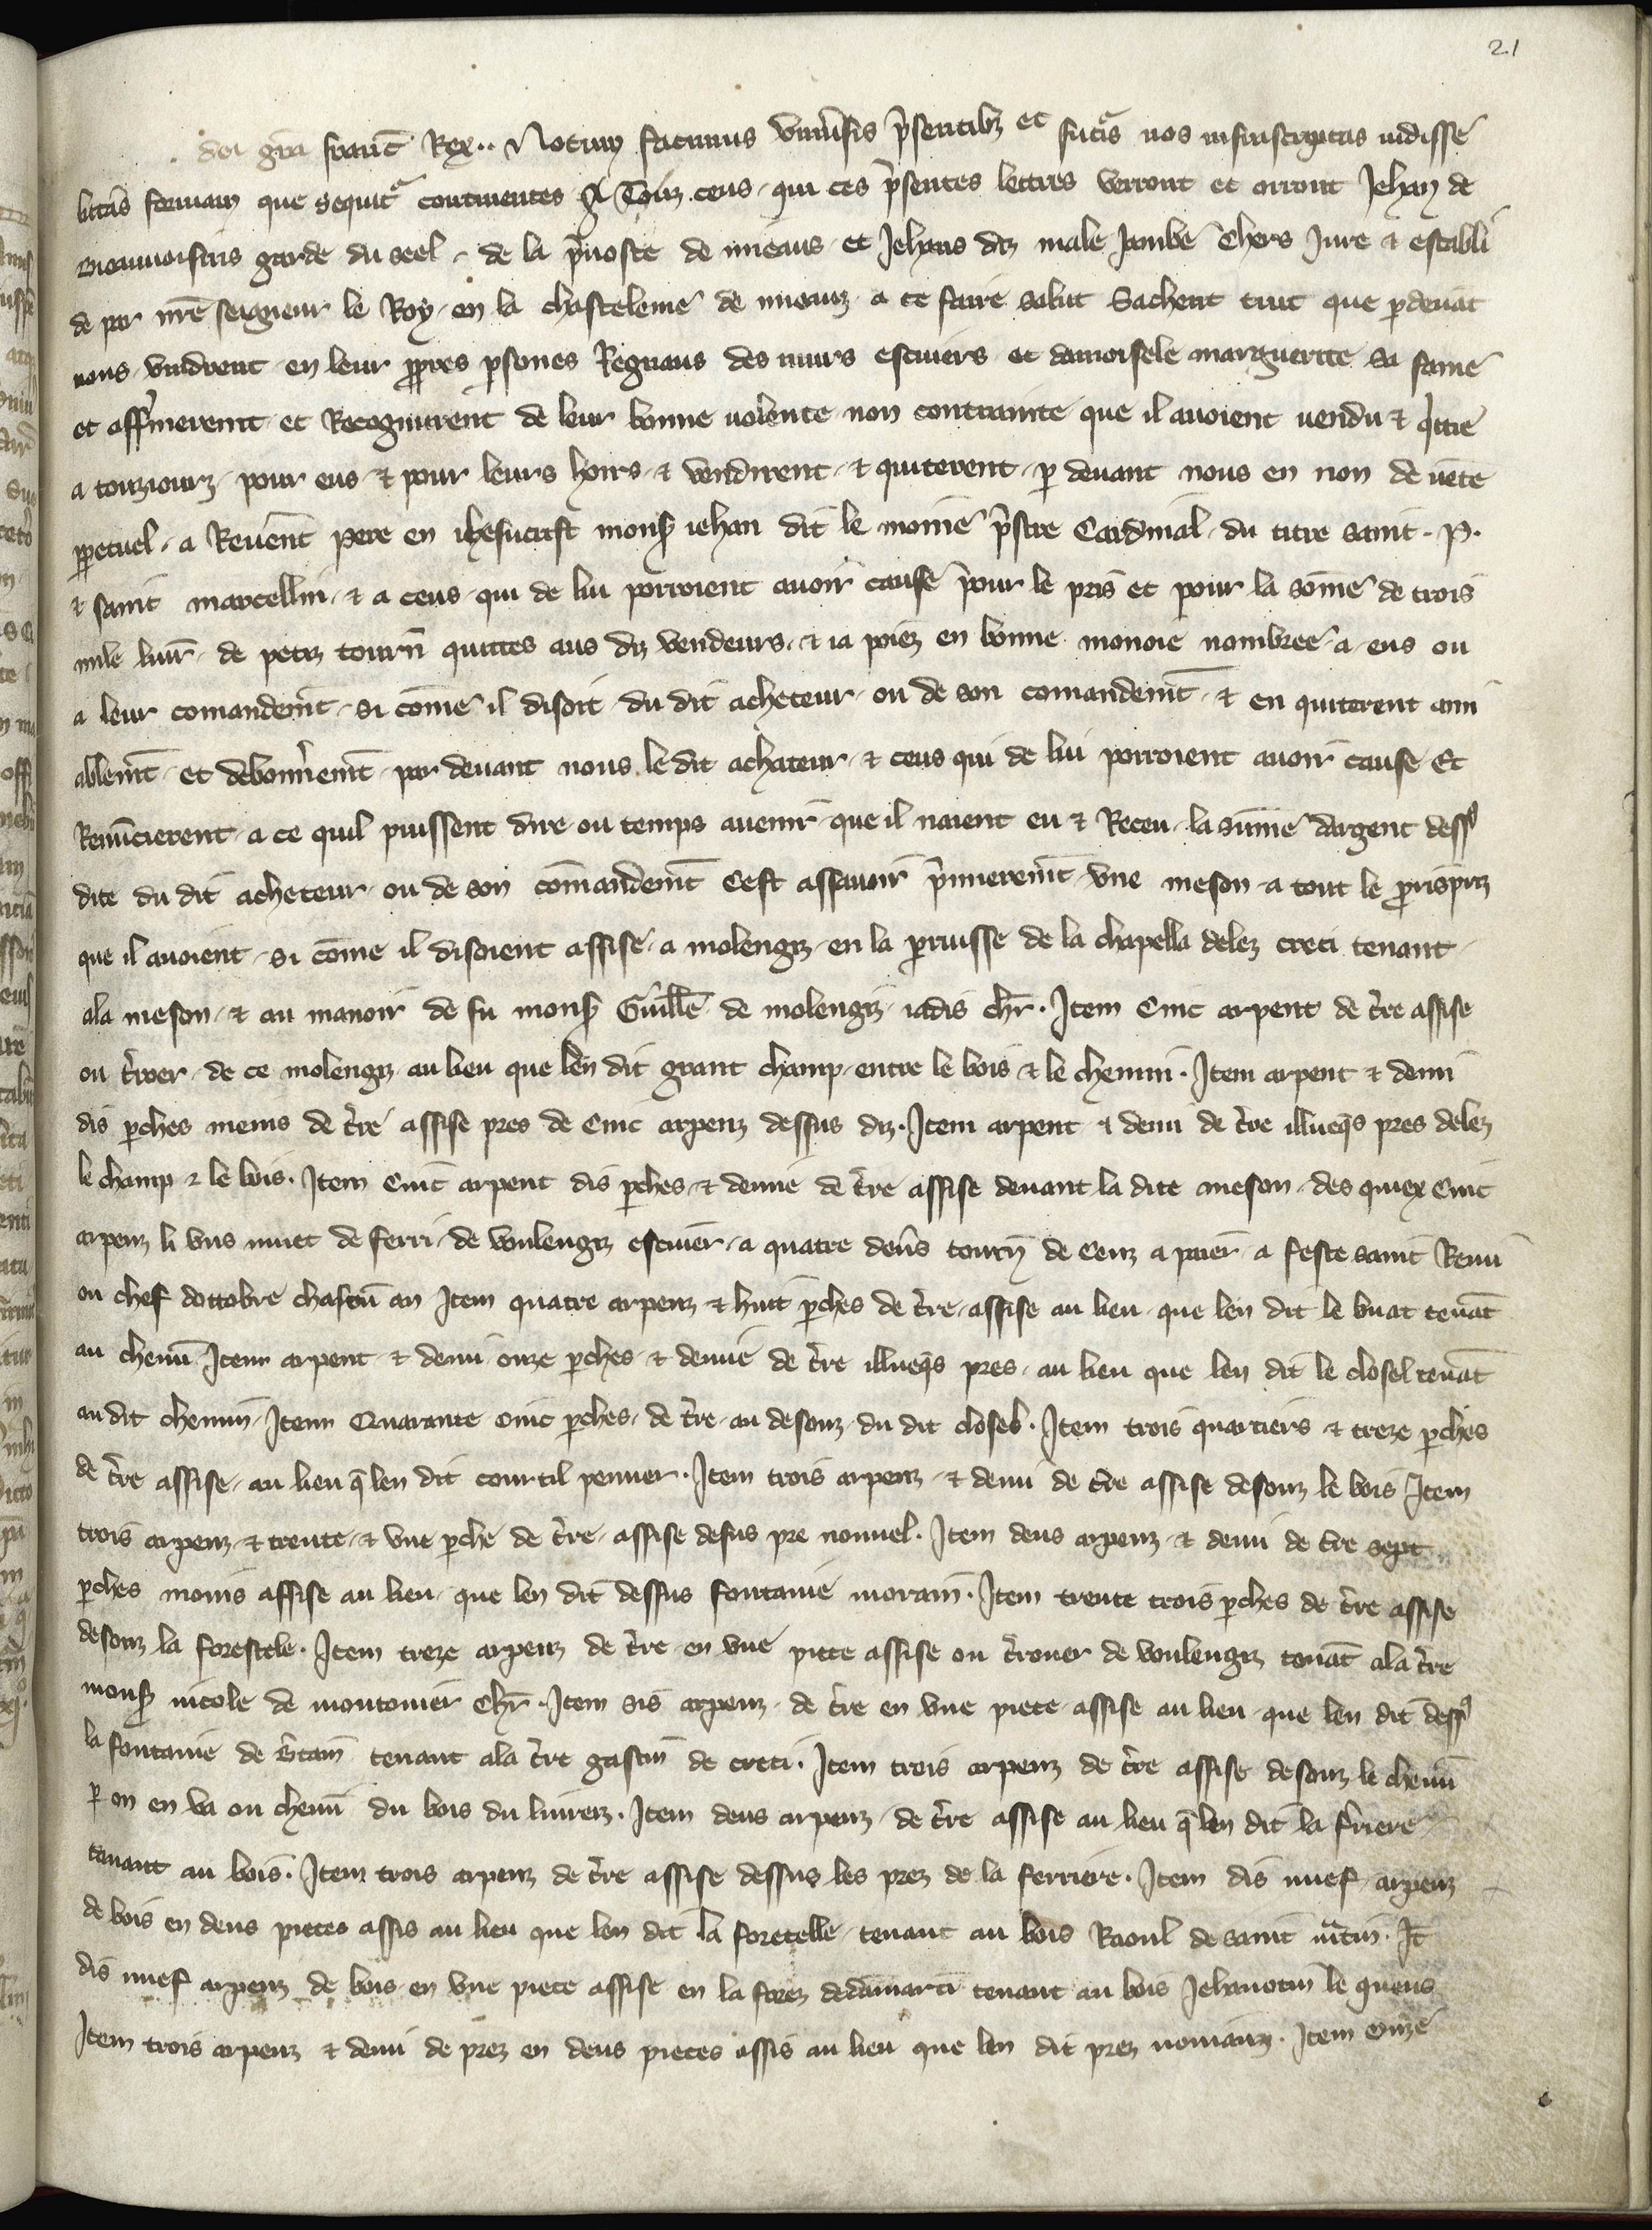 21
dei gra franc Rex.. Notum facimus univsis psentibz et futis nos infrascriptas vidisse
litas formam que sequit continentes A Touz ceus qui ces psentes lettres verront et orront Jehan de
garde du seel de la pvoste de miaus et Jehans diz male Jambe Clers Jure & establi
de par nre seigneur le Roy en la chastelenie de miauz a ce faire salut Sachent tuit que pdevat
nous vindrent en leur ppres psones Regnaus des murs escuiers et damoisele marguerite sa fame
et affmerent et Recognurent de leur bonne volente non contrainte que il avoient vendu & qitie
a touzjourz pour eus & pour leurs hoirs & vendirent & quiterent p devant nous en non de vete
ppetuel a Revent pere en ihesucrist mons iehan dit le moine pstre Cardinal du titre saint P.
& saint marcellin & a ceus qui de lui porroient avoir cause pour le pris et pour la some de trois
mile livr de petiz tourn quittes aus diz vendeurs & ia poiez en bonne monoie nombree a eus ou
a leur comandemt si come il disoit du dit acheteur ou de son comandemt & en quiterent ami
ablemt et debonremt par devant nous le dit achateur & ceus qui de lui porroient avoir cause Et
Renuncierent a ce quil puissent dire ou temps avenir que il naient eu & Receu la sume dargent dess
dite du dit acheteur ou de son comandemt Cest assavoir pmieremt une meson a tout le pourpris
que il avoient si come il disoient assise a molengz en la parruisse de la chapella delez creci tenant
ala meson & au manoir de fu mons Guille de molengz iadis chr. Item Cinc arpent de tre assise
ou troer de ce molengz au lieu que len dit grant champ entre le bois & le chemin. Item arpent & demi
dis pches meins de tre assise pres de Cinc arpenz dessus diz. Item arpent & demi de tre illueqs pres delez
le champ & le bois. Item Cinc arpent dis pches & demie de tre assise devant la dite meson des quiex Cinc
arpenz li uns muet de ferri de voulengz escuier a quatre deniers tourn de Cens a paier a feste saint Remi
ou chef doctobre chascun an Item quatre arpenz & huit pches de tre assise au lieu que len dit le buat tenat
au chemi Item arpent & demi onze pches & demie de tre illueqs pres au lieu que len dit le closel tenat
au dit chemin Item Quarante cinc pches de tre au desouz du dit closel. Item trois quartiers & treze pches
de tre assise au lieu q len dit courtil penner. Item trois arpenz & demi de tre assise desouz le bois Item
trois arpenz & trente & une pche de tre assise desus pre nonnel. Item deus arpenz & demi de tre sept
pches moins assise au lieu que len dit dessus fontaine moram. Item trente trois pches de tre assise
desouz la forestele. Item treze arpenz de tre en une piece assise ou trouer de voulengz tenat ala tre
mons nicole de montonier Chr. Item sis arpenz de tre en une piece assise au lieu que len dit dess
la fontaine de tenant ala tre gascin de creci. Item trois arpenz de tre assise desouz le chemi
p on en va ou chemi du bois du Item deus arpenz de tre assise au lieu q len dit la friere
tenant au bois. Item trois arpenz de tre assise dessus les prez de la ferriere. Item dis nuef arpenz
de bois en deus pieces assis au lieu que len dit la foretelle tenant au bois Raoul de saint matin. It
dis nuef arpenz de bois en une piece assise en la forez dedamarti tenant au bois Jehanotin le queus
Item trois arpenz & demi de prez en deus pieces assis au lieu que len dit prez Item onze